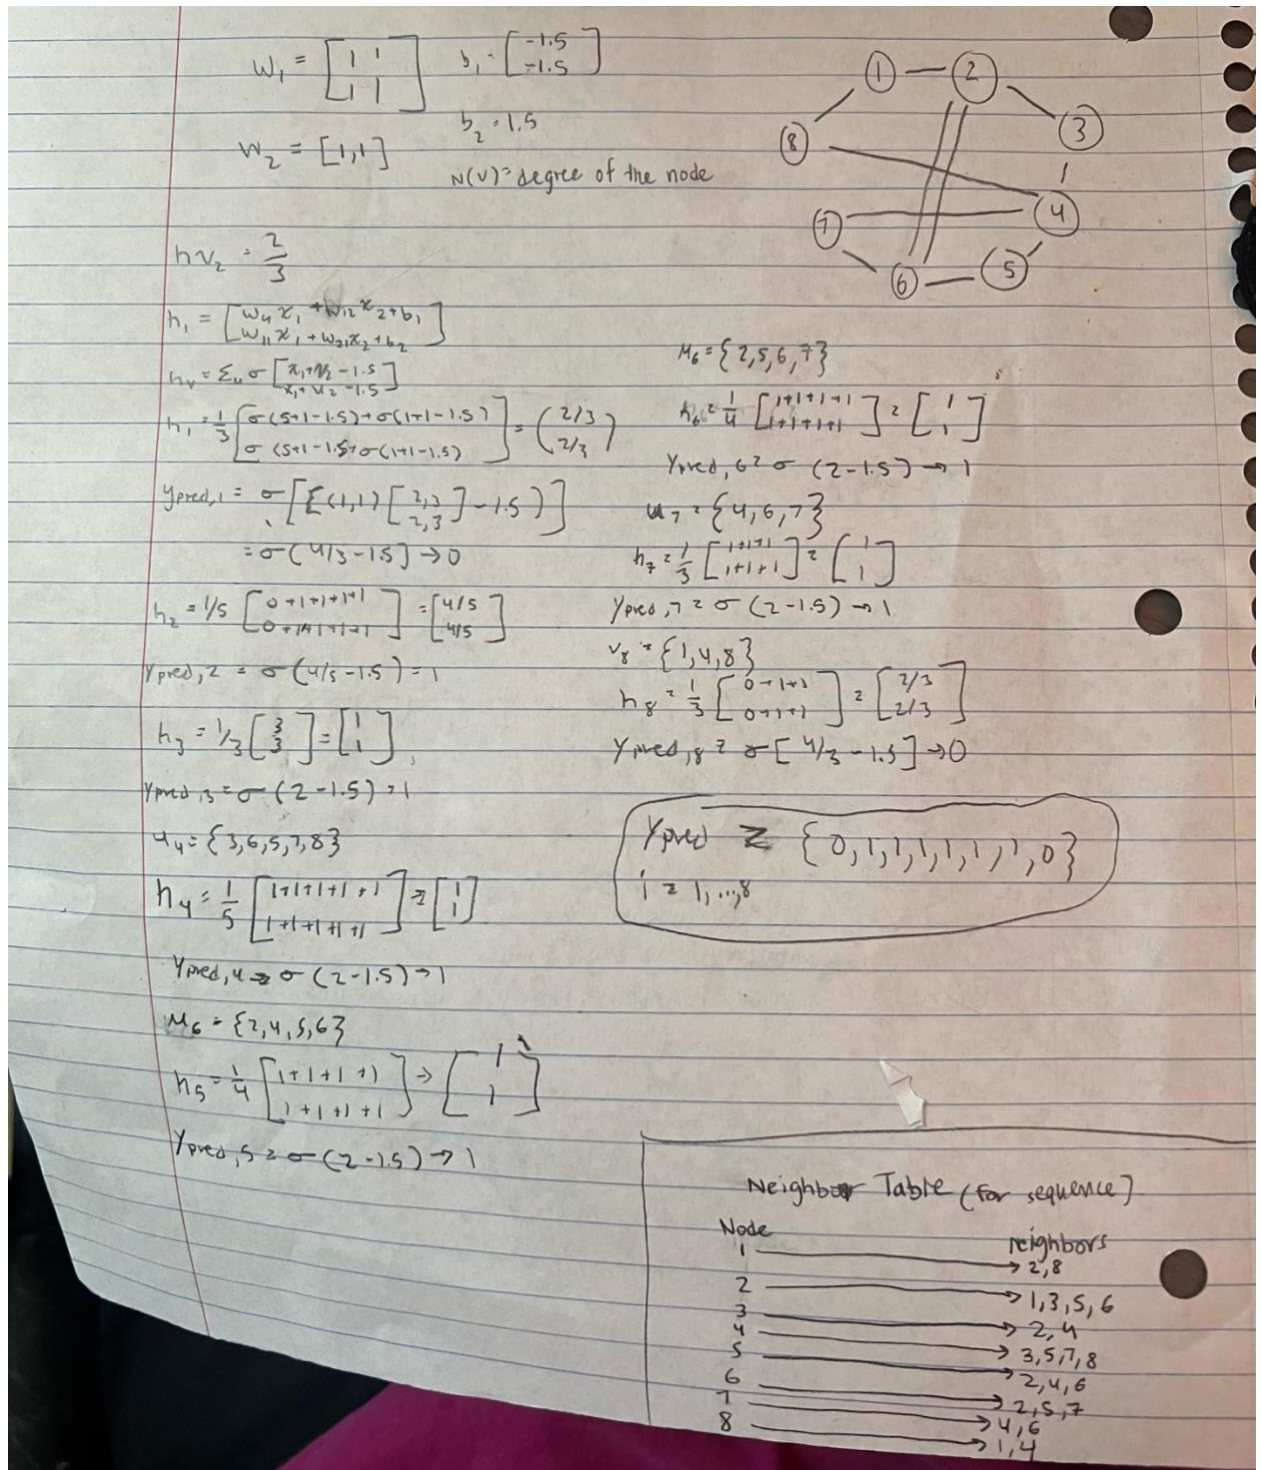 W₁ = [1 1; 1 1]   b₁ = [-1.5; -1.5]
b₂ = 1.5
W₂ = [1,1]
N(V) = degree of the node
1 2 3 4 5 6 7 8
hv₂ = 2/3
h₁ = [W₁₁x₁ + W₁₂x₂ + b₁; W₁₁x₁ + W₂₁x₂ + b₂]
hᵥ = Σᵤ σ [x₁+x₂ - 1.5; x₁+x₂ - 1.5]
h₁ = 1/3 [σ(5+1-1.5)+σ(1+1-1.5); σ(5+1-1.5)+σ(1+1-1.5)] = (2/3; 2/3)
Ypred,1 = σ[[(1,1)[2,3; 2,3] - 1.5)]
= σ(4/3 - 1.5] → 0
h₂ = 1/5 [0+1+1+1+1; 0+1+1+1+1] = [4/5; 4/5]
Ypred,2 = σ(4/5 - 1.5) = 1
h₃ = 1/3 [3; 3] = [1; 1]
Ypred,3 = σ(2-1.5) = 1
u₄ = {3,6,5,7,8}
h₄ = 1/5 [1+1+1+1+1; 1+1+1+1+1] = [1; 1]
Ypred,4 = σ(2-1.5) → 1
M₆ = {2,4,5,6}
h₅ = 1/4 [1+1+1+1; 1+1+1+1] → [1; 1]
Ypred,5 = σ(2-1.5) → 1
M₆ = {2,5,6,7}
h₆ = 1/4 [1+1+1+1; 1+1+1+1] = [1; 1]
Ypred,6 = σ(2-1.5) → 1
u₇ = {4,6,7}
h₇ = 1/3 [1+1+1; 1+1+1] = [1; 1]
Ypred,7 = σ(2-1.5) → 1
v₈ = {1,4,8}
h₈ = 1/3 [0+1+1; 0+1+1] = [2/3; 2/3]
Ypred,8 = σ[4/3 - 1.5] → 0
Ypred = {0,1,1,1,1,1,1,0}
i = 1,...,8
Neighbor Table (for sequence]
Node   neighbors
1 → 2,8
2 → 1,3,5,6
3 → 2,4
4 → 3,5,7,8
5 → 2,4,6
6 → 2,5,7
7 → 4,6
8 → 1,4